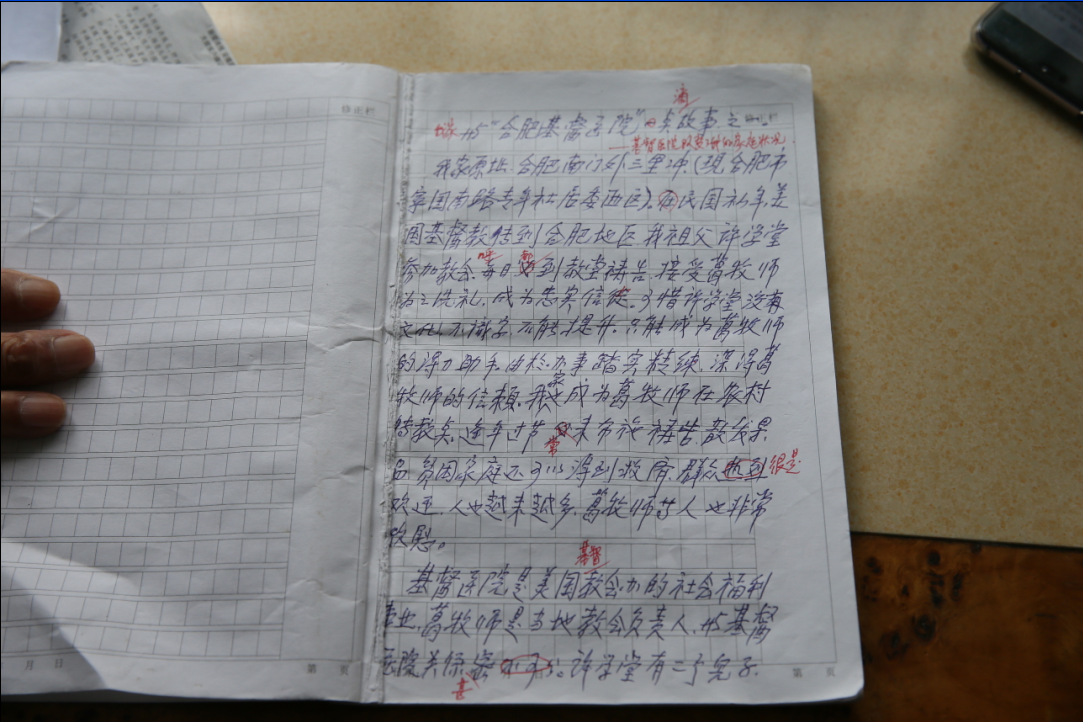 滴
我家与“合肥基督医院”的真故事之一
修正栏
修正栏
——基督医院救济的家庭状况
我家原址、合肥南门外三里冲(现合肥市
宁国南路专年社居委西区)。在民国初年美
国基督教传到合肥地区、我祖父许学堂
参加教会、每日必到教堂祷告、接受葛牧师
为之洗礼、成为忠实信徒。可惜许学堂没有
文化、不识字、不能提升、只能成为葛牧师
的得力助手、由於办事踏实精练、深得葛
家
牧师的信赖、我也成为葛牧师在农村
传教点、逢年过节 来布施祷告、散发果
常
品、贫困家庭还可以得到救济、群众 很是
欢迎、人也越来越多、葛牧师等人也非常
欣慰。
基督
基督医院是美国教会办的社会福利
事业、葛牧师是当地教会负责人、与基督
医院关系密不可分。许学堂有二个儿子、
甚
月 日
第 页
第 页